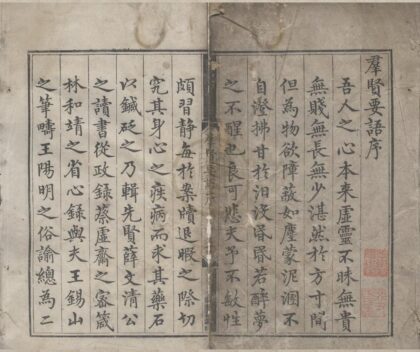 羣賢要語序
吾人之心本来虚靈不昧無貴
無賤無長無少湛然於方寸間
但為物欲障蔽如塵蒙泥涸不
自澄拂甘於汨没昏昏若醉夢
之不醒也良可悲夫予不敏性
頗習静每於案牘退暇之際切
究其身心之疾病而求其藥石
以鍼砭之乃輯先賢薛文清公
之讀書從政錄蔡虚齋之密箴
林和靖之省心錄與夫王錫山
之筆疇王陽明之俗諭總為二